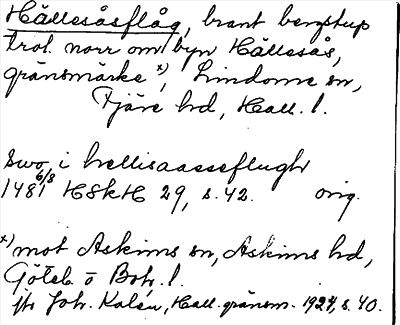 Hällesåsflåg, brant bergstup
trol. norr om byn Hällesås,
gränsmärke x), Lindome sn,
Fjäre hd, Hall. l.
swo i hellisaasseflugh
1481 6/8 HSkH 29, s. 42. orig.
x) mot Askims sn, Askims hd,
Göteb o Boh. l.
jfr Joh. Kalén, Hall. gränsm. 1924, s. 40.